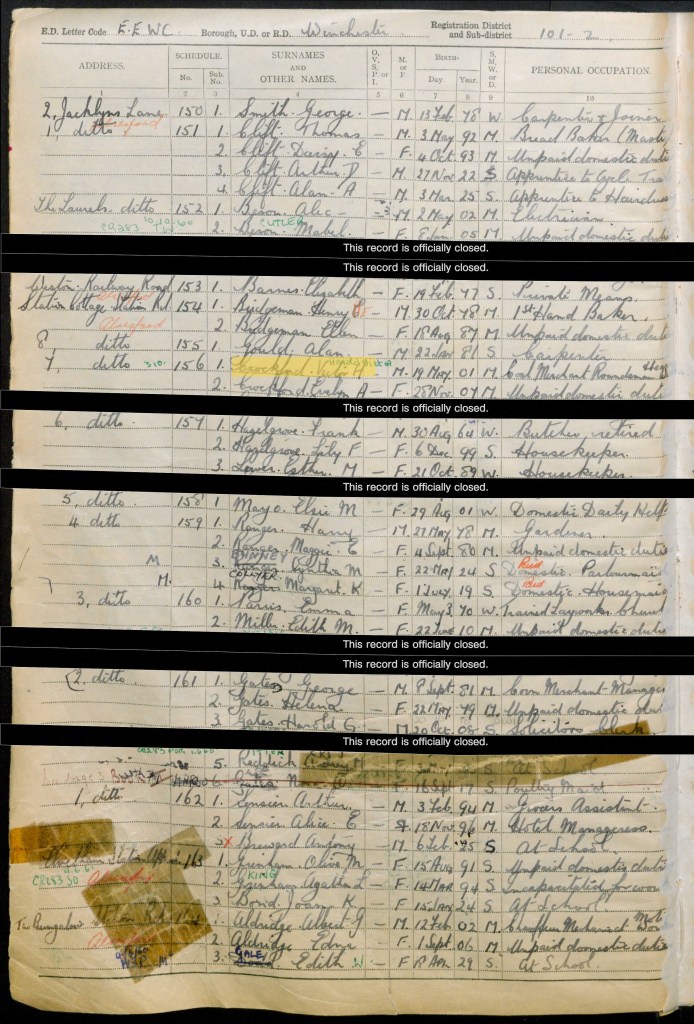 E.D. Letter Code E.E W C. Borough, U.D. or R.D. Winchester Registration District and Sub-district 101-2
ADDRESS. SCHEDULE. SURNAMES AND OTHER NAMES. O, V, S, P. or I. M. or F. BIRTH— S, M, W. or D. PERSONAL OCCUPATION.
No. Sub. No. Day. Year.
1 2 3 4 5 6 7 8 9 10
2, Jacklyns Lane 150 1. Smith George. — M. 13 Feb. 78 W. Carpenter & Joiner
1, ditto 151 1. Clift Thomas — M. 3 May 92 M. Bread Baker (Mast
2. Clift Daisy E — F. 4 Oct. 93 M. Unpaid domestic duti
3. Clift Arthur D — M. 27 Nov 22 S Apprentice to Cycle Tra
4. Clift Alan A M. 3 Mar. 25 S. Apprentice to Hairdres
The Laurels ditto 152 1. Alec — M. 2 May 02 M. Electrician.
CR283 10.10.60 2. CUTLER Mabel. F. 8 Jan 05 M. Unpaid domestic duti
This record is officially closed.
This record is officially closed.
Railway Road 153 1. Barnes Elizabeth — F. 19 Feb. 77 S. Private Means.
Station Cottage Station Rd. 154 1. Bridgeman Henry — M. 30 Oct 78 M. 1st Hand Baker.
Alresford 2. Bridgeman Ellen — F. 18 Aug 87 M. Unpaid domestic duti
8 ditto 155 1. Gould Alan — M. 22 Jan 81 S. Carpenter
7, ditto 156 1. Crockford Victor H — M. 19 May 01 M. Coal Merchant Roundsman
2. Crockford Evelyn A — F. 28 Nov. 07 M. Unpaid domestic duti
This record is officially closed.
6, ditto 157 1. Hazelgrove Frank — M. 30 Aug 64 W. Butcher, retired
2. Hazelgrove Lily F — F. 6 Dec 99 S. Housekeeper.
3. Esther M — F. 21 Oct. 89 W. Housekeeper.
This record is officially closed.
5, ditto 158 1. Mayo. Elsie M — F. 29 Aug 01 W. Domestic Daily Help
4 ditto 159 1. Ranger. Harry — M. 27 May 78 M. Gardener.
2. Ranger Maggie E — F. 4 Sept. 80 M. Unpaid domestic duti
M 3. BINNEY Ranger Cynthia M — F. 22 May 24 S. Domestic. Parlourmaid
M. 4. COLLYER Ranger Margaret K — F. 1 July 19 S. Domestic. Housemaid
3, ditto 160 1. Emma — F. May 3 70 W.
2. Mills Edith M. — F. 22 June 10 M. Unpaid domestic duti
This record is officially closed.
This record is officially closed.
2. ditto 161 1. Gates George — M. 8 Sept. 81 M. Corn Merchant Manager
2. Gates. Helena — F. 22 May 79 M. Unpaid domestic duti
3. Gates Harold G — M. 20 Oct. 08 S. Solicitors Clerk
This record is officially closed.
5. S At School
6. F. 16 Sept 17 S Poultry Maid
1, ditto 162 1. Sensier Arthur. — M. 3 Feb. 94 M. Grocers Assistant
2. Sensier Alice E — F 18 Nov. 96 M. Hotel Manageress.
3 Antony — M. 6 Feb. 25 S At School.
163 1. Olive M — F. 15 Aug 91 S. Unpaid domestic duti
CR283 2. KING Agatha L — F. 14 Mar 94 S. Incapacitated for
3. Bond Joan K — F. 15 Jan 24 S. At School
The Bungalow Station Rd. 164 1. Aldridge Albert G — M. 12 Feb 02 M. Chauffeur Mechanic
Alresford 2. Aldridge Edna F. 1 Sept. 06 M. Unpaid domestic duti
3. GALE Edith W F. Apr 29 S. At School.